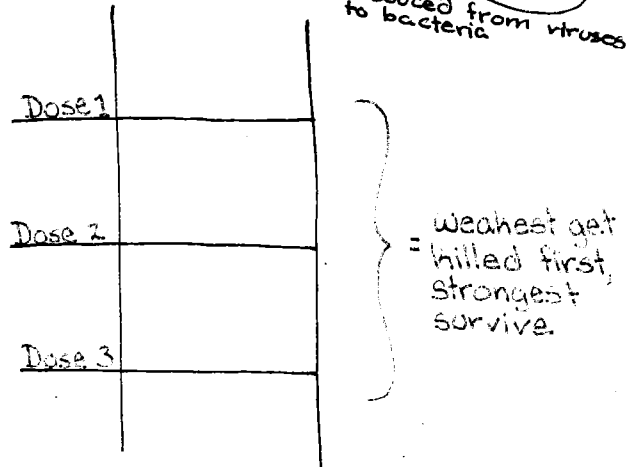 from viruses
to bacteria
Dose 1
Dose 2
Dose 3
= weakest get
killed first,
strongest
survive.